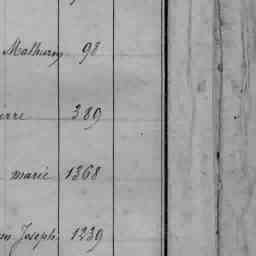 Mathurin 98
ierre 389
marie 1368
Joseph 1239